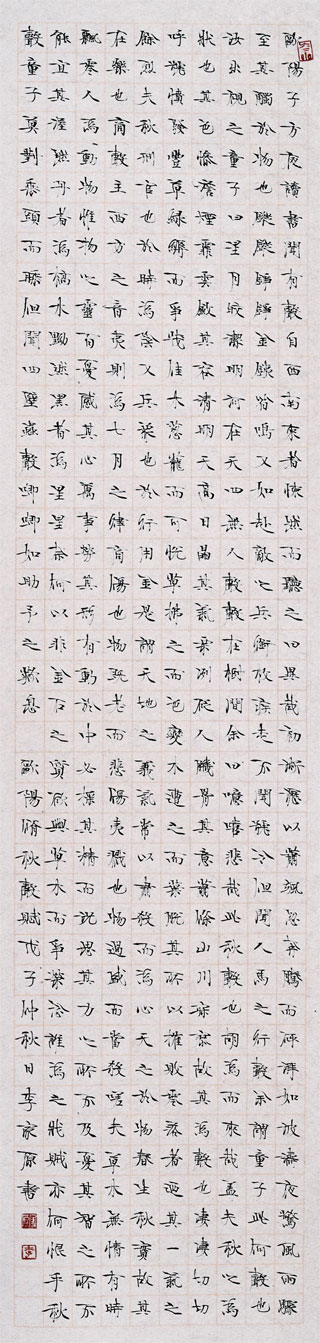 歐陽子方夜讀書聞有聲自西南來者悚然而聽之曰異哉初淅瀝以蕭颯忽奔騰而砰湃如波濤夜驚風雨驟
至其觸於物也鏦鏦錚錚金鐵皆鳴又如赴敵之兵銜枚疾走不聞號令但聞人馬之行聲余謂童子此何聲也
汝出視之童子曰星月皎潔明河在天四無人聲聲在樹間余曰噫嘻悲哉此秋聲也胡為而來哉蓋夫秋之為
狀也其色慘澹煙霏雲斂其容清明天高日晶其氣栗冽砭人肌骨其意蕭條山川寂寥故其為聲淒淒切切
呼號憤發豐草綠縟而爭茂佳木蔥籠而可悅草拂之而色變木遭之而葉脫其所以摧敗零落者迺其一氣之
餘烈夫秋刑官也於時為陰又兵象也於行用金是謂天地之義氣常以肅殺而為心天之於物春生秋實故其
在樂也商聲主西方之音夷則為七月之律商傷也物既老而悲傷夷戮也物過盛而當殺嗟夫草木無情有時
飄零人為動物惟物之靈百憂感其心萬事勞其形有動於中必搖其精而況思其力之所不及憂其智之所不
能宜其渥然丹者為槁木黟然黑者為星星奈何以非金石之質欲與草木而爭榮念誰為之戕賊亦何恨乎秋
聲童子莫對垂頭而睡但聞四壁蟲聲唧唧如助予之歎息 歐陽脩秋聲賦戊子仲秋日李家原書